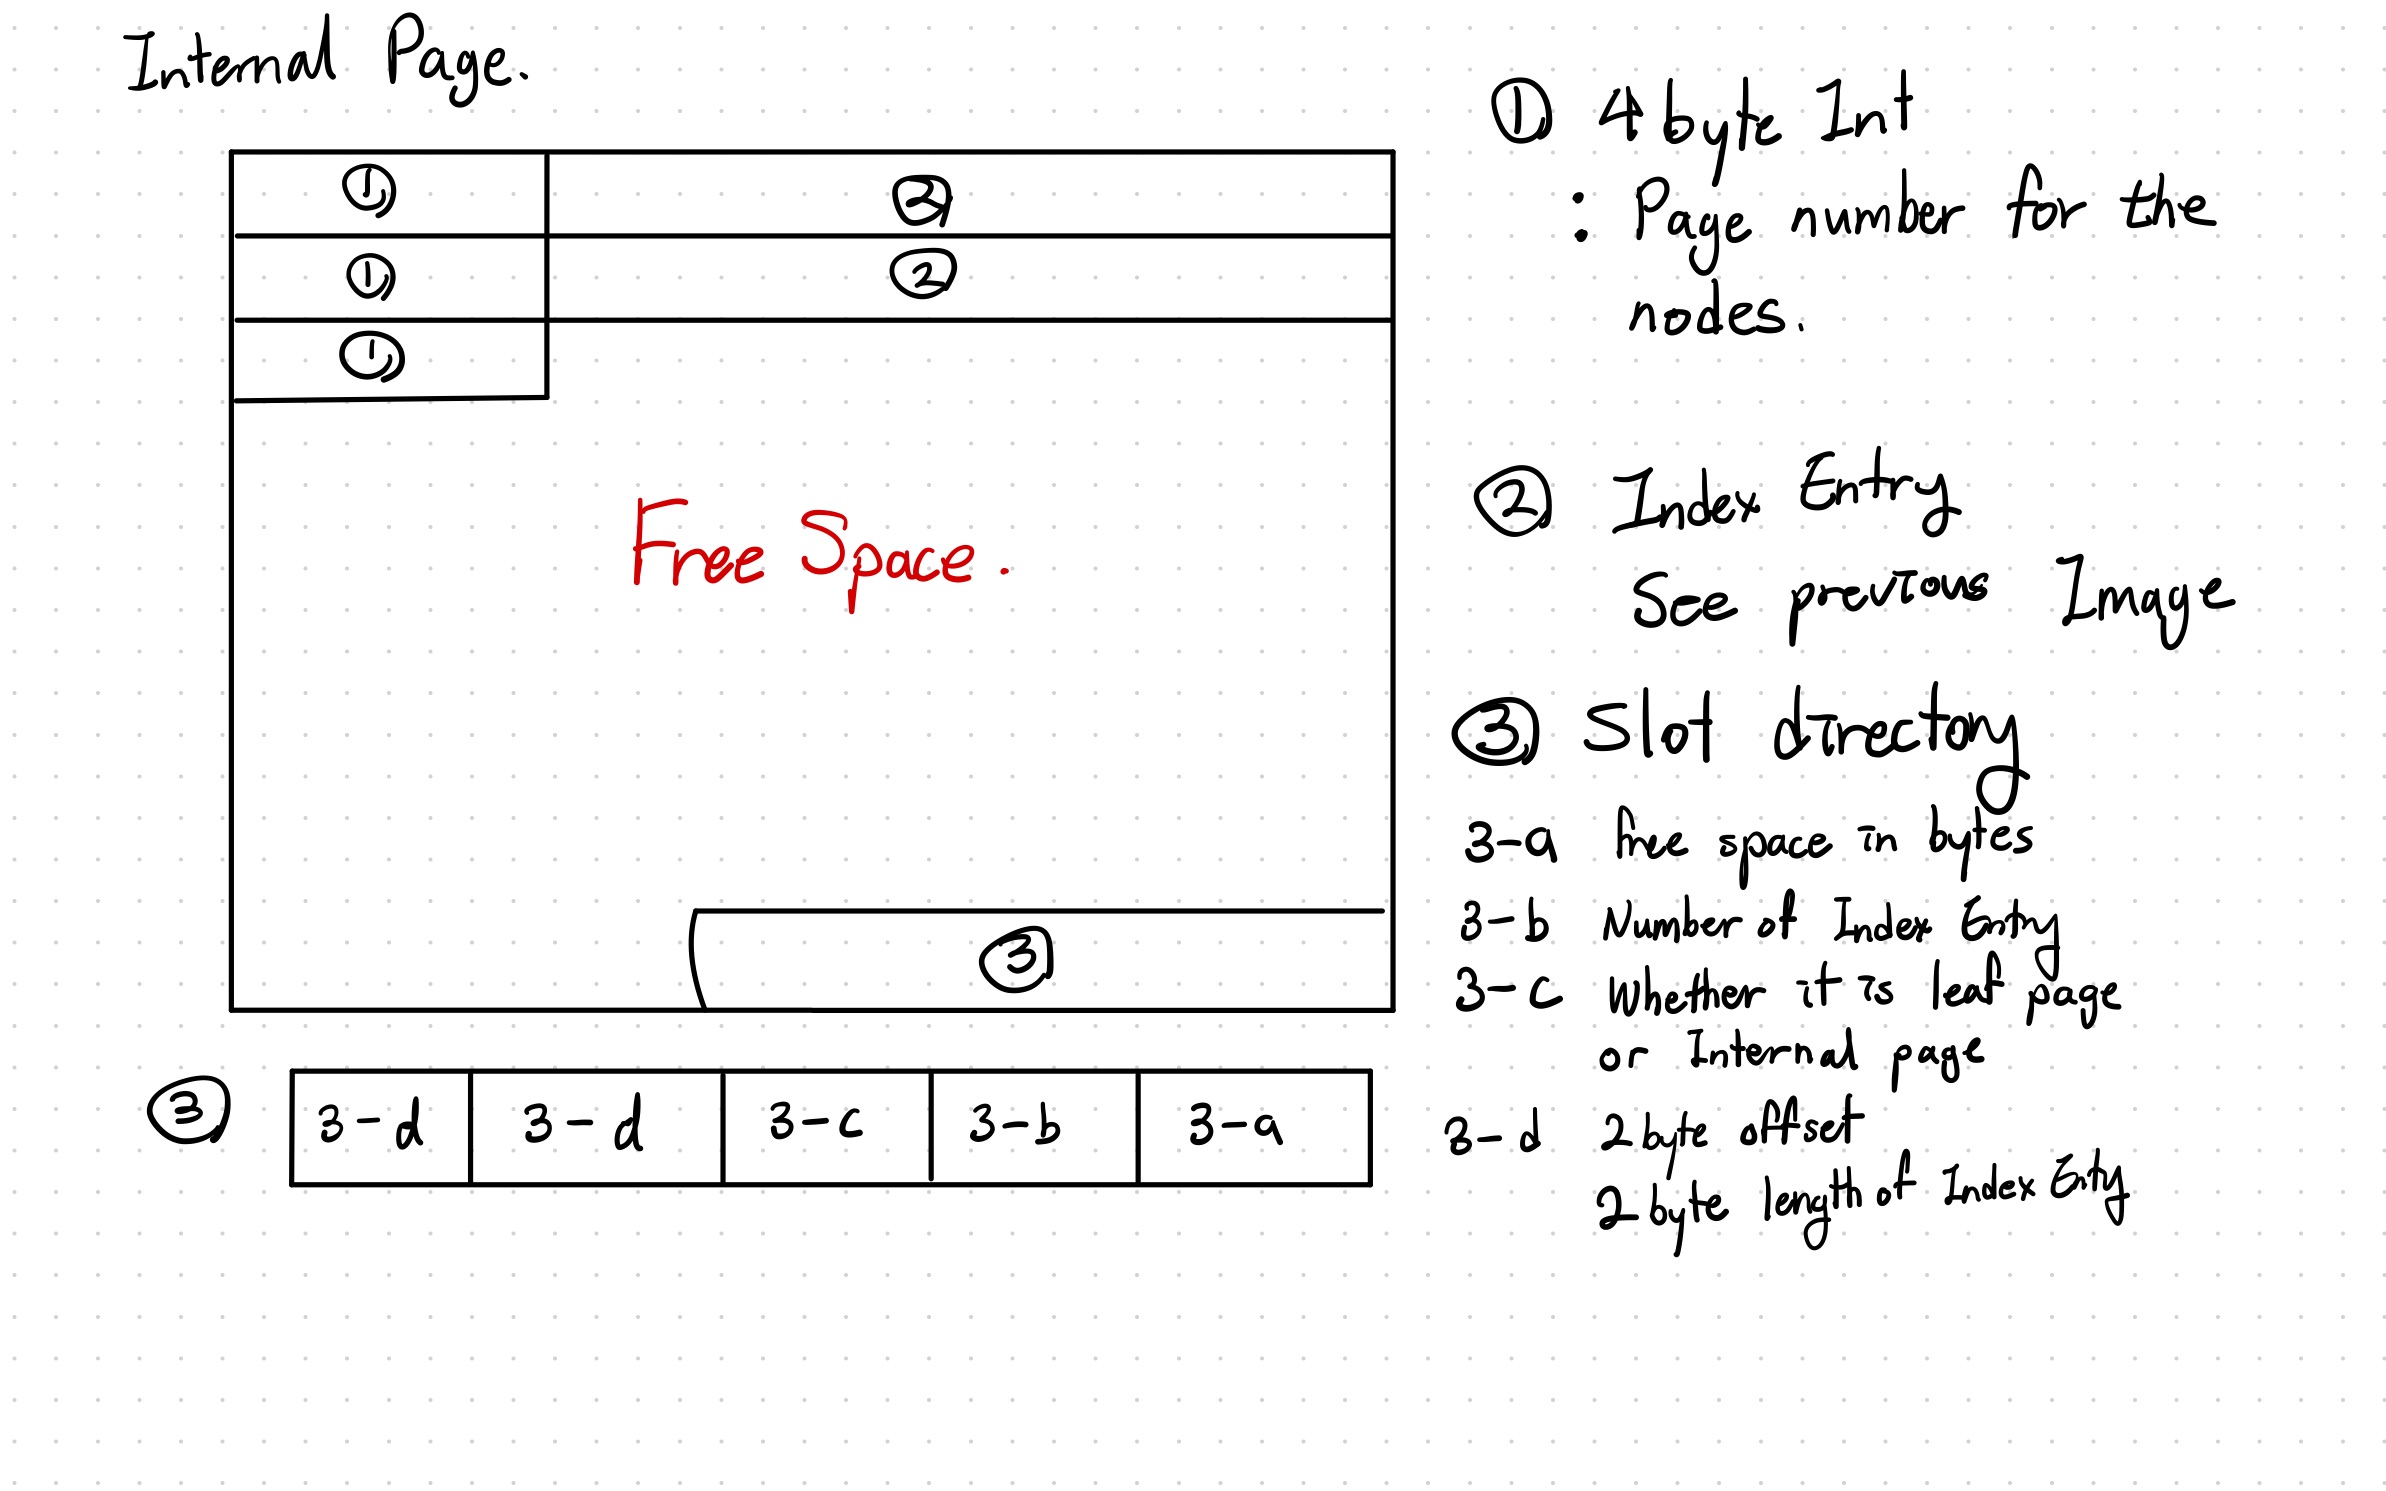 Internal Page.
① ②
① ②
①
Free Space.
③
③ 3-d 3-d 3-c 3-b 3-a
① 4 byte Int
: Page number for the
nodes.
② Index Entry
See previous Image
③ Slot directory
3-a free space in bytes
3-b Number of Index Entry
3-c Whether it is leaf page
or Internal page
3-d 2 byte offset
2 byte length of Index Entry